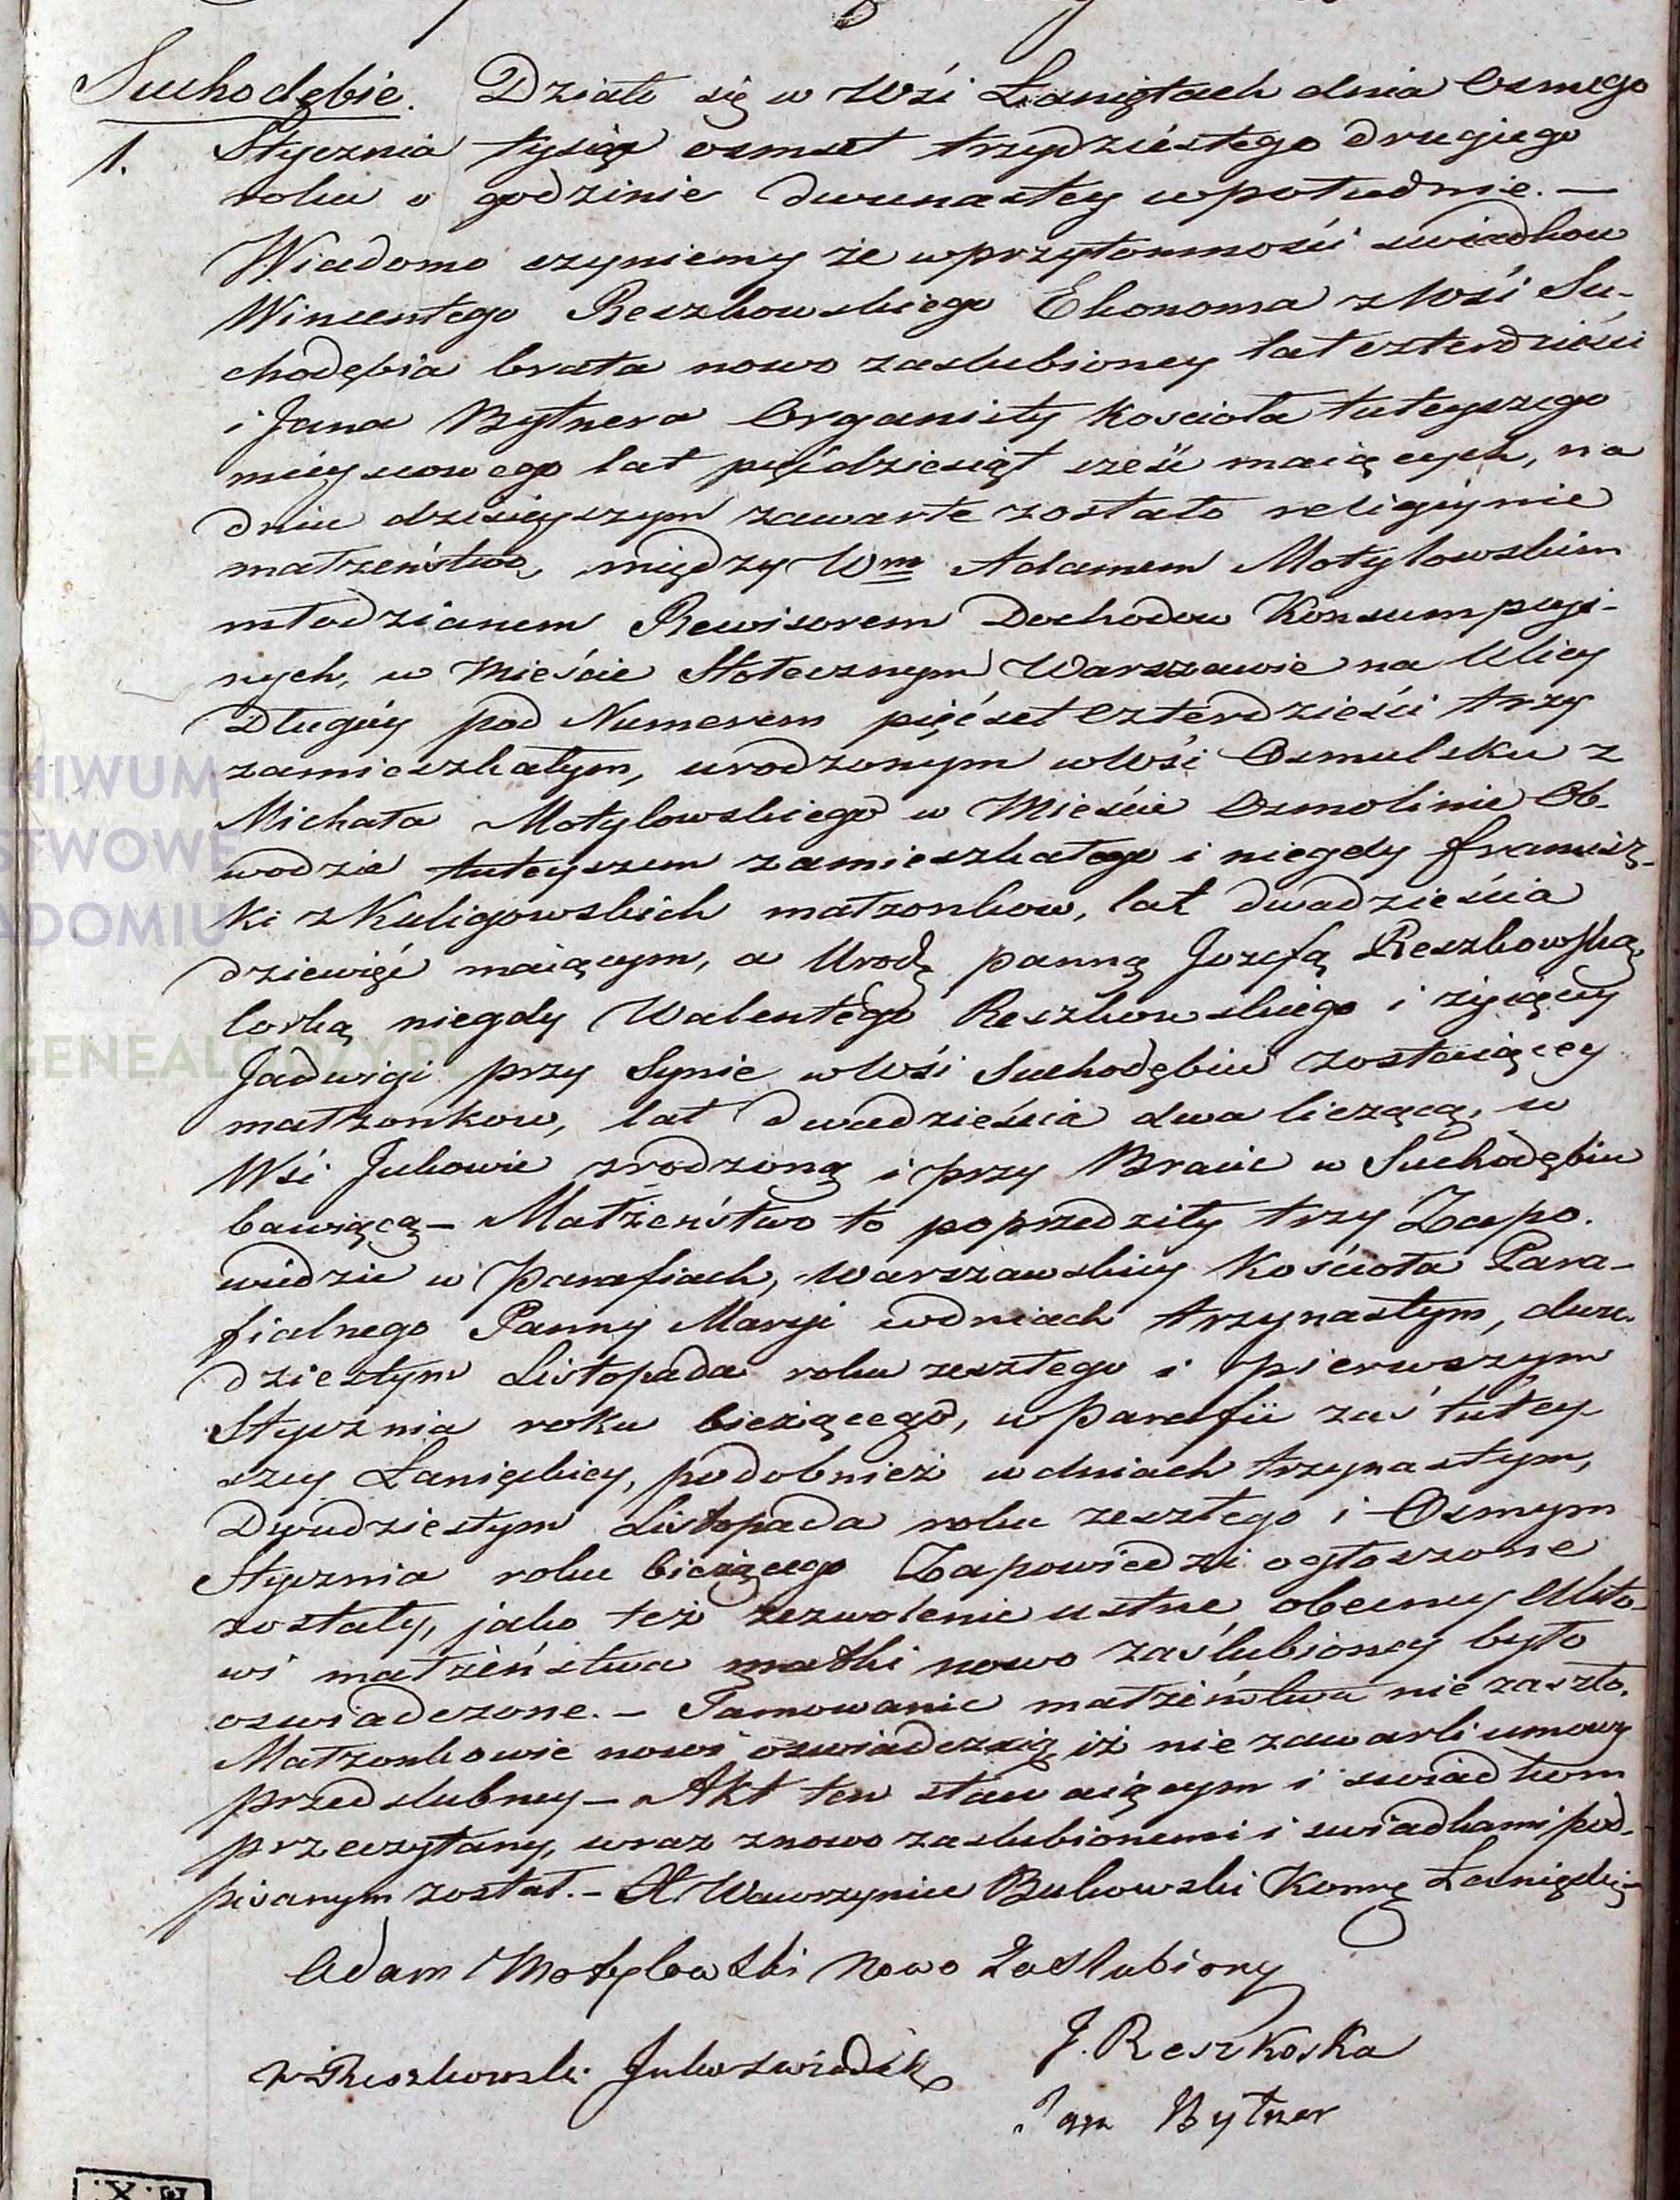 Suchodębie. Działo się w Wsi Łaniętach dnia Osmego
1. Stycznia tysiąc osmset trzydziestego drugiego
roku o godzinie dwunastey wpołudnie. —
Wiadomo czyniemy że wprzytomności swiadkow
Wincentego Reszkowskiego Ekonoma z Wsi Su-
chodębia brata nowo zaslubioney lat czterdzieści
i Jana Bytnera Organisty Kosciola tuteyszego
mieyscowego lat pięćdziesiąt sześć maiących, na
dniu dzisieyszym zawarte zostało religiynie
małzeństwo, między Wm Adamem Motylowskim
młodzianem Rewisorem Dochodow Konsumpcyi-
nych, w Mieście Stołecznym Warszawie na Ulicy
Długiéy pod Numerem pięćset czterdzieści trzy
zamieszkałym, urodzonym wWsi Osmulsku z
Michała Motylowskiego w Mieście Osmolinie Ob-
wodzie tuteyszem zamieszkałego i niegdy Francisz-
ki z Kuligowskich małzonkow, lat dwadzieścia
dziewięć maiącym, a Urodz. panną Jozefą Reszkowską
Corką niegdy Walentego Reszkowskiego i żyiącey
Jadwigi przy Synie wWsi Suchodębiu zostaiącey
małzonkow, lat dwadzieścia dwa liczącą, w
Wsi Jukowie zrodzoną i przy Bracie w Suchodębiu
bawiącą — Małżeństwo to poprzedziły trzy Zapo-
wiedzie w Parafiach, Warszawskiey Kościoła Para-
fialnego Panny Maryi wdniach trzynastym, dwu-
dziestym Listopada roku zeszłego i pierwszym
Stycznia roku bieżącego, w Parafii zaś tutey-
szey Łanięckiey, podobnież wdniach trzynastym,
Dwudziestym Listopada roku zeszłego i Osmym
Stycznia roku bieżącego Zapowiedzi ogłoszone
zostały, jako też zezwolenie ustne obecney Akto-
wi małżeństwa matki nowo zaślubioney było
oswiadczone. — Tamowanie małżeństwa nie zaszło.
Małzonkowie nowi oswiadczaią iż nie zawarli umowy
przedslubney — Akt ten stawaiącym i swiadkom
przeczytany, wraz znowo zaslubionemi i swiadkami pod-
pisanym został. — X Wawrzyniec Bukowski Kom
Adam Motylowski Nowo Zaslubiony
J. Reszkoska
W Reszkowski Jako swiadek
Jan Bytner
HIWUM
STWOWE
ADOMIU
GENEALODZY.PL